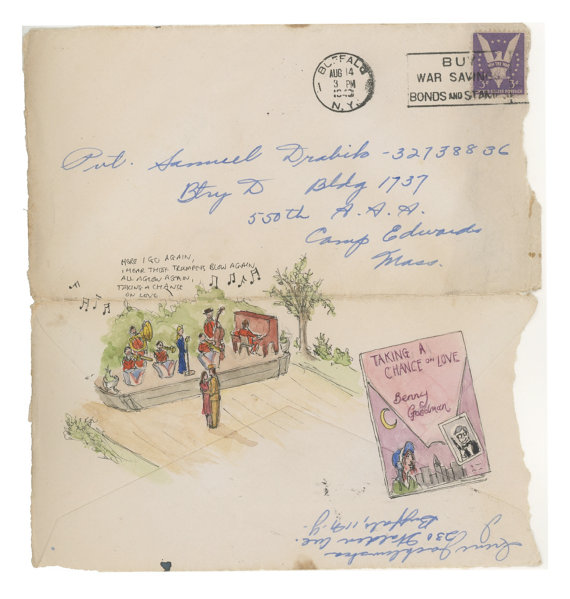 BUFFALO
AUG 14
3 PM
1943
N.Y.
1
BUY
WAR SAVINGS
BONDS AND STAMPS
WIN THE WAR
3¢
Pvt. Samuel Drabik - 32738836
Btry D Bldg 1737
550th A.A.A.
Camp Edwards
Mass.
HERE I GO AGAIN,
I HEAR THOSE TRUMPETS BLOW AGAIN,
ALL AGLOW AGAIN,
TAKING A CHANCE
ON LOVE
TAKING A
CHANCE ON LOVE
Benny
Goodman
Irene
Walden Ave.
Buffalo, 11, N.Y.